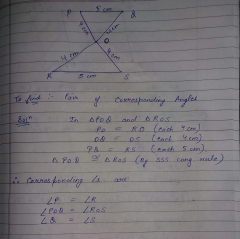 P 5 cm Q
4 cm 4 cm
O
4 cm 4 cm
R 5 cm S
To find :- Pair of Corresponding Angles
Solⁿ In △POQ and △ROS
PO = RO (each 4 cm)
OQ = OS (each 4 cm)
PQ = RS (each 5 cm)
△ POQ ≅ △ ROS (By SSS cong rule)
∴ Corresponding ∠s are:
∠P = ∠R
∠POQ = ∠ROS
∠Q = ∠S